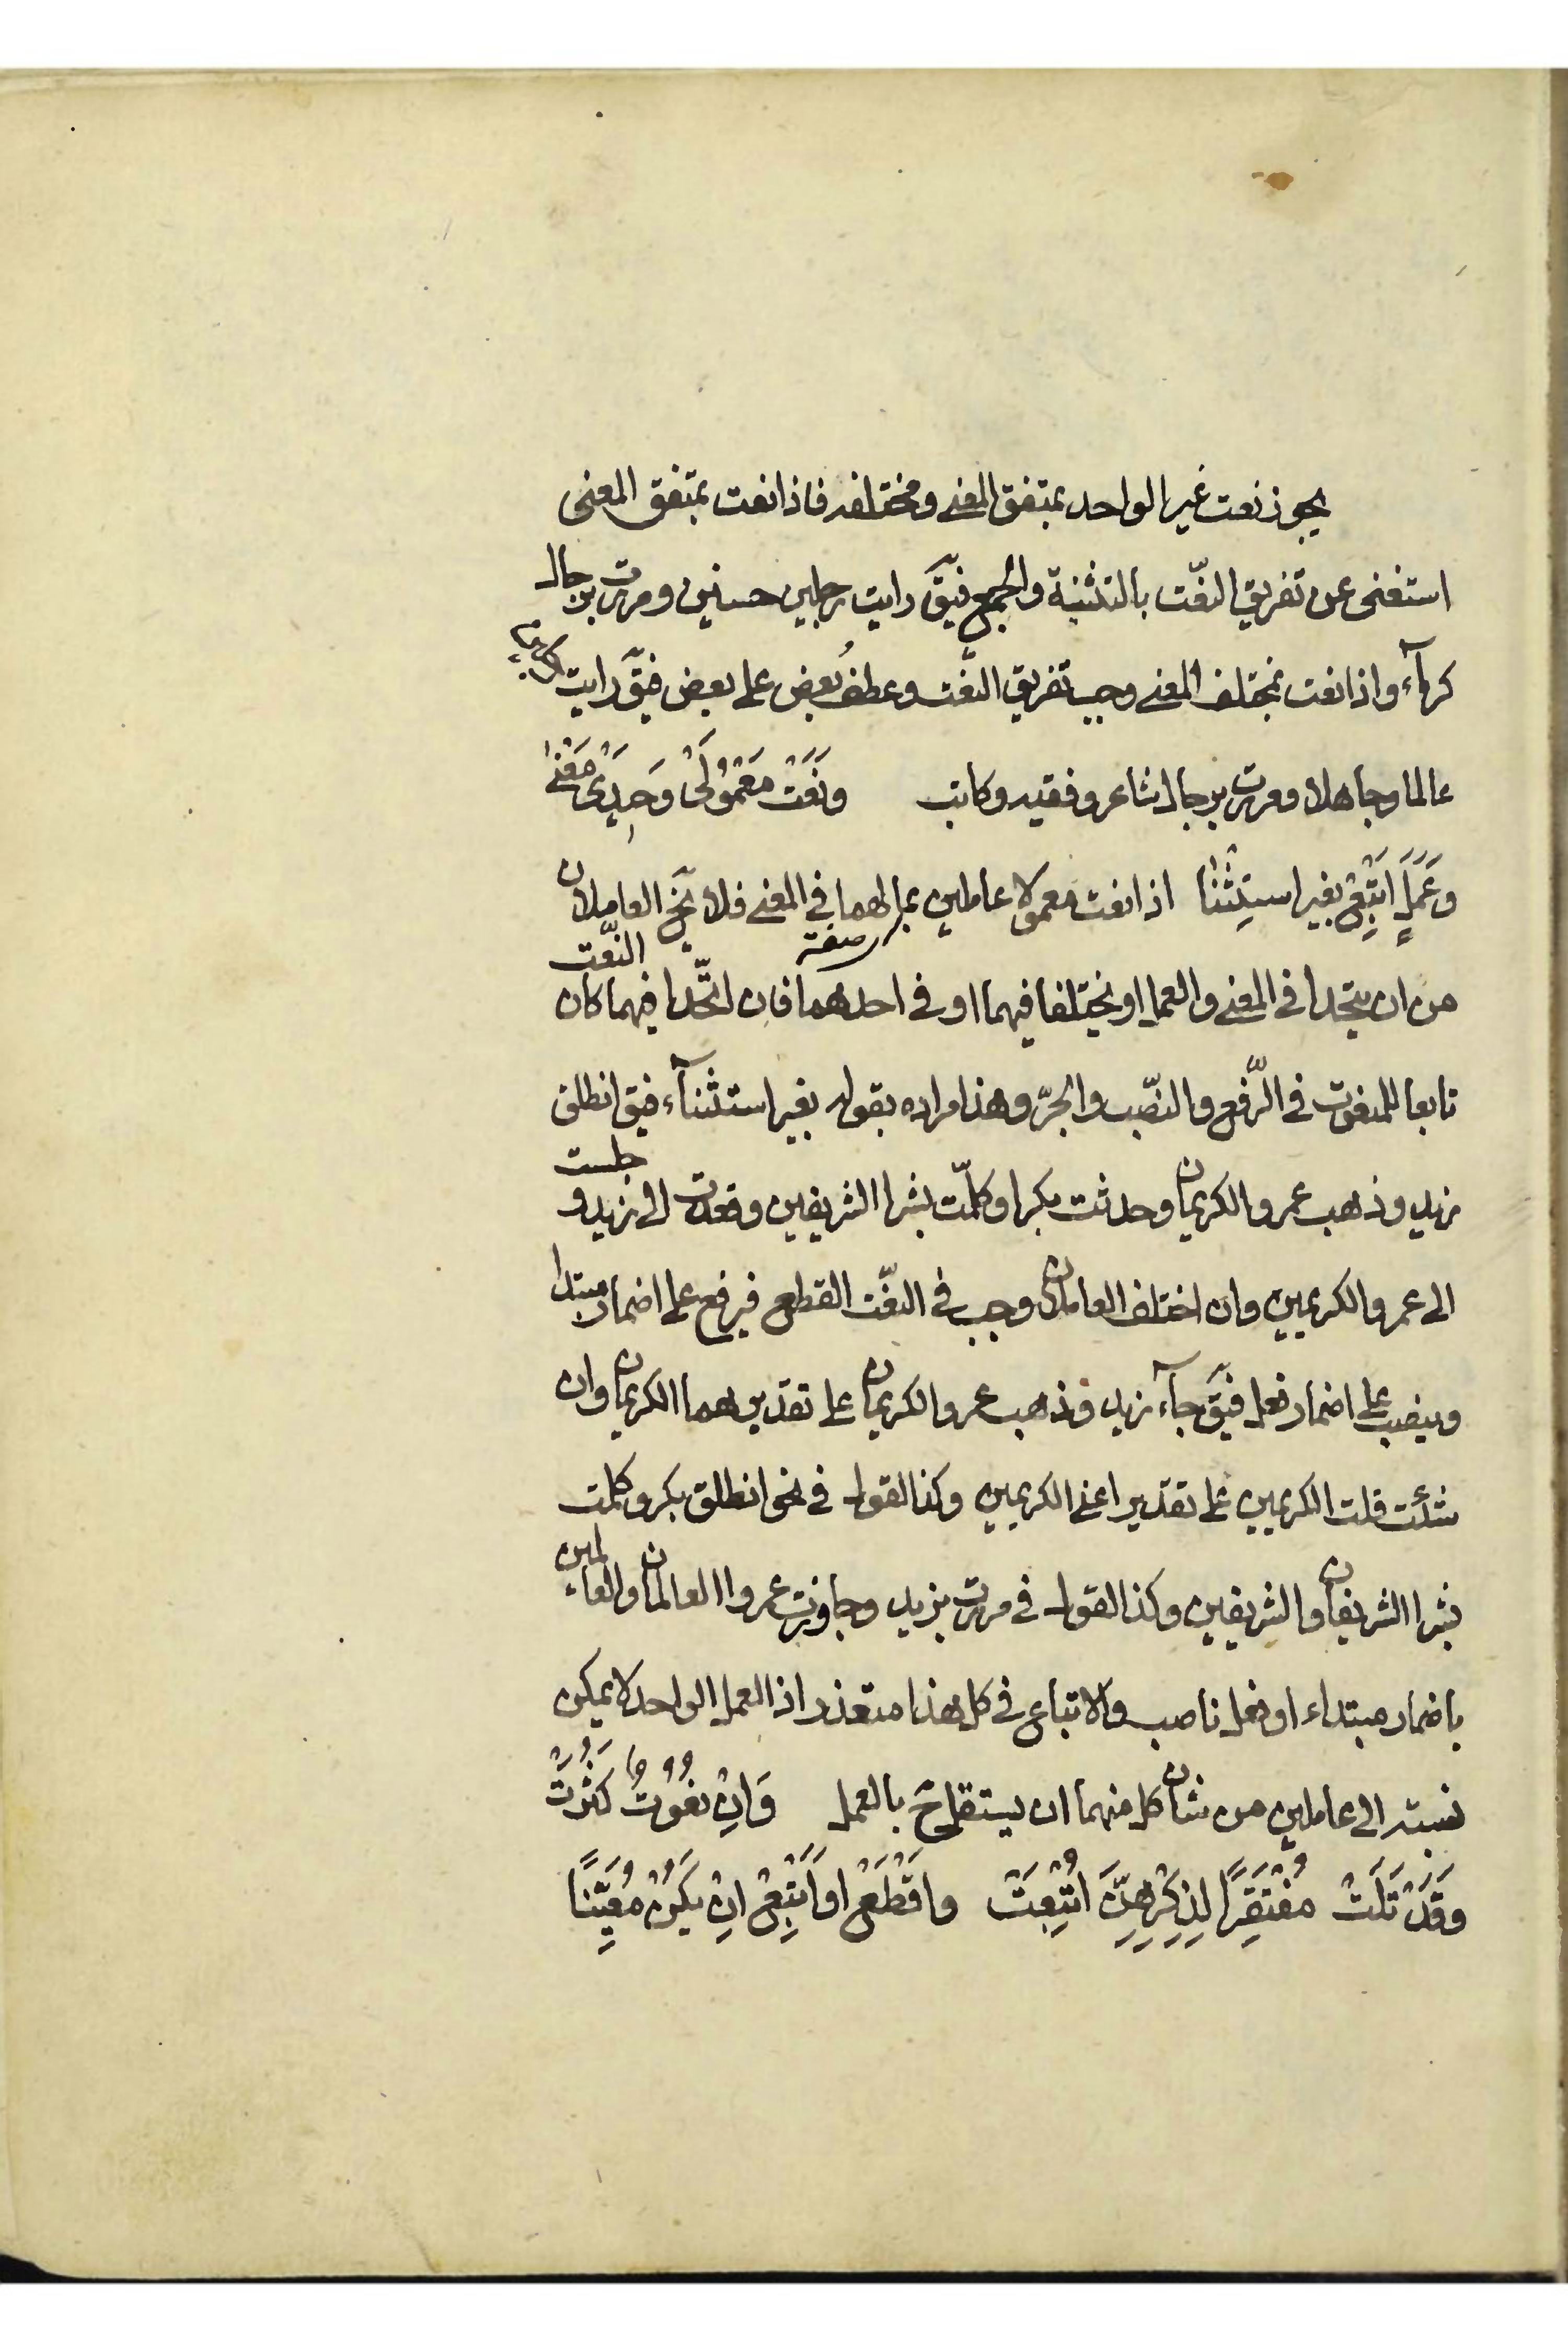 يجوز نعت غير الواحد بمتفق المعنى ومختلفه فاذا نعت بمتفق المعنى
استغنى عن تفريق النّعت بالتثنية والجمع فيقَ رايت رجلين حسنين ومررت برجال
كرمآء واذا نعت بمختلف المعنى وجب تفريق النّعت وعطفُ بعض على بعض فيقَ رايت
عالما وجاهلا ومررت برجال شاعر وفقيه وكاتب وَنَعْتَ مَعْمُولَىْ وَحِيدَىْ مَعْنٰى
وَعَمَلٍ اَتْبِعْ بغير استِثْنَا اذا نعت معمولا عاملين بما لهما في المعنى فلا يخ العاملان
صفة
من ان يتحدا في المعنى والعمل او يختلفا فيهما او في احدهما فان اتّحدا فيهما كان النّعت
تابعا للمنعوت في الرّفع والنصّب والجرّ وهذا مراده بقوله بغير استثنآء فيق انطلق
زيد وذهب عمرو الكريمان وحدثت بكرا وكلّمت بشرا الشريفين وقعدت الى زيد و جلست
الى عمرو الكريمين وان اختلف العاملان وجب في النعّت القطع فيرفع على اضمار مبتدا
وينصب على اضمار فعل فيقَ جآء زيد وذهب عمرو الكريمان على تقدير هما الكريمان وان
شئت قلت الكريمين على تقدير اعنى الكريمين وكذا القول في نحو انطلق بكر وكلمت
بشرا الشريفان والشريفين وكذا القول في مررت بزيد وجاوزت عمروا العالمان والعالمين
باضمار مبتداء او فعل ناصب والاتباع في كل هذا متعذر اذ العمل الواحد لا يمكن
نسبته الى عاملين من شان كل منهما ان يستقل بالعمل وَاِنْ نُعُوتٌ كَثُرَتْ
وَقَدْ تَلَتْ مُفْتَقِرًا لِذِكْرِهِنَّ اُتْبِعَتْ واقْطَعْ او اَتْبِعْ اِنْ يَكُنْ مُعَيَّنًا